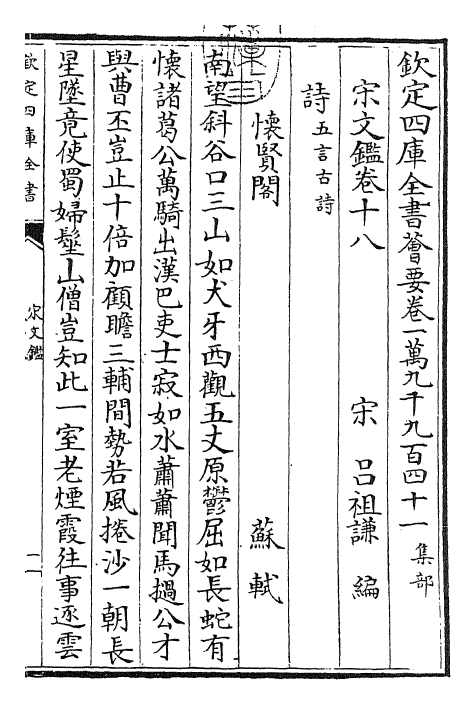 欽定四庫全書薈要卷一萬九千九百四十一 集部
宋文鑑卷十八
宋 吕祖謙 編
詩 五言古詩
懷賢閣 蘇軾
南望斜谷口三山如犬牙西觀五丈原鬱屈如長蛇有
懷諸葛公萬騎出漢巴吏士寂如水蕭蕭聞馬撾公才
與曹丕豈止十倍加顧瞻三輔間勢若風捲沙一朝長
星墜竟使蜀婦髽山僧豈知此一室老煙霞往事逐雲
欽定四庫全書
宋文鑑
一